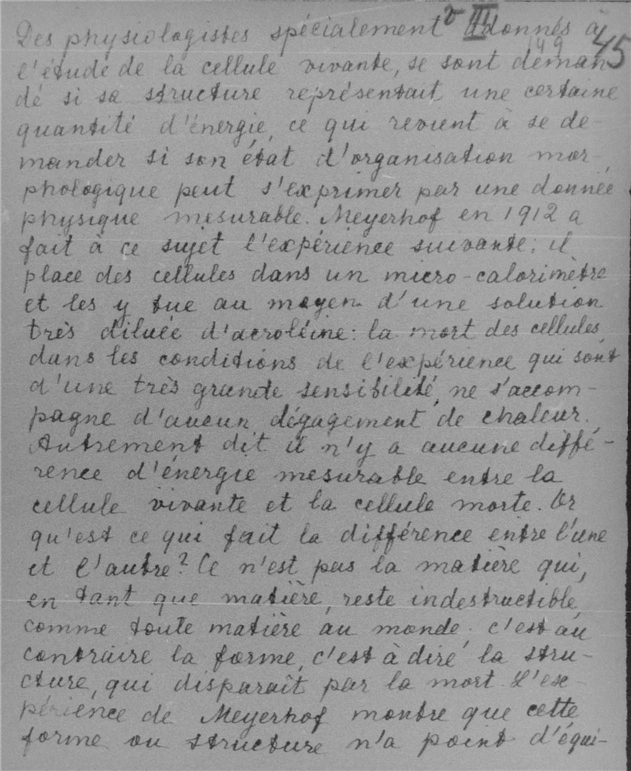 Des physiologistes spécialement adonnés à
l'étude de la cellule vivante, se sont deman
dé si sa structure représentait une certaine
quantité d'énergie, ce qui revient à se de-
mander si son état d'organisation mor-
phologique peut s'exprimer par une donnée
physique mesurable. Meyerhof en 1912 a
fait à ce sujet l'expérience suivante: il
place des cellules dans un micro-calorimètre
et les y tue au moyen d'une solution
très diluée d'acroléine: la mort des cellules
dans les conditions de l'expérience qui sont
d'une très grande sensibilité, ne s'accom-
pagne d'aucun dégagement de chaleur.
Autrement dit il n'y a aucune diffé-
rence d'énergie mesurable entre la
cellule vivante et la cellule morte. Or
qu'est ce qui fait la différence entre l'une
et l'autre? Ce n'est pas la matière qui,
en tant que matière, reste indestructible
comme toute matière au monde. c'est au
contraire la forme, c'est à dire la stru-
cture, qui disparaît par la mort. L'ex-
périence de Meyerhof montre que cette
forme ou structure n'a point d'équi-
III
149
45